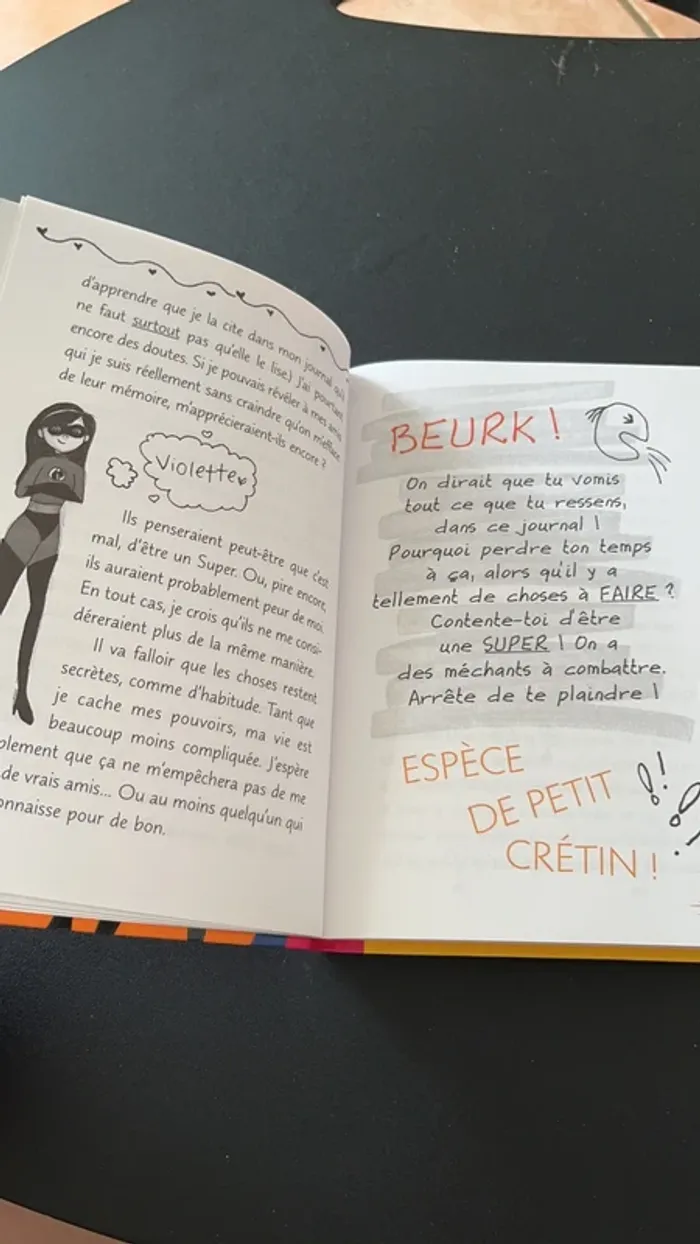 d'apprendre que je la cite dans mon journal qu'il
ne faut surtout pas qu'elle le lise.) J'ai pourtant
encore des doutes. Si je pouvais révéler à mes amis
qui je suis réellement sans craindre qu'on m'efface
de leur mémoire, m'apprécieraient-ils encore ?
Violette
Ils penseraient peut-être que c'est
mal, d'être un Super. Ou, pire encore,
ils auraient probablement peur de moi.
En tout cas, je crois qu'ils ne me consi-
déreraient plus de la même manière.
Il va falloir que les choses restent
secrètes, comme d'habitude. Tant que
je cache mes pouvoirs, ma vie est
beaucoup moins compliquée. J'espère
plement que ça ne m'empêchera pas de me
de vrais amis... Ou au moins quelqu'un qui
onnaisse pour de bon.
BEURK !
On dirait que tu vomis
tout ce que tu ressens,
dans ce journal !
Pourquoi perdre ton temps
à ça, alors qu'il y a
tellement de choses à FAIRE ?
Contente-toi d'être
une SUPER ! On a
des méchants à combattre.
Arrête de te plaindre !
ESPÈCE
DE PETIT
CRÉTIN !
!!